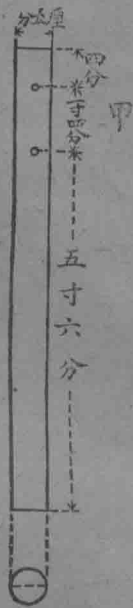 甲
分五厘
四分
一寸四分
五寸六分